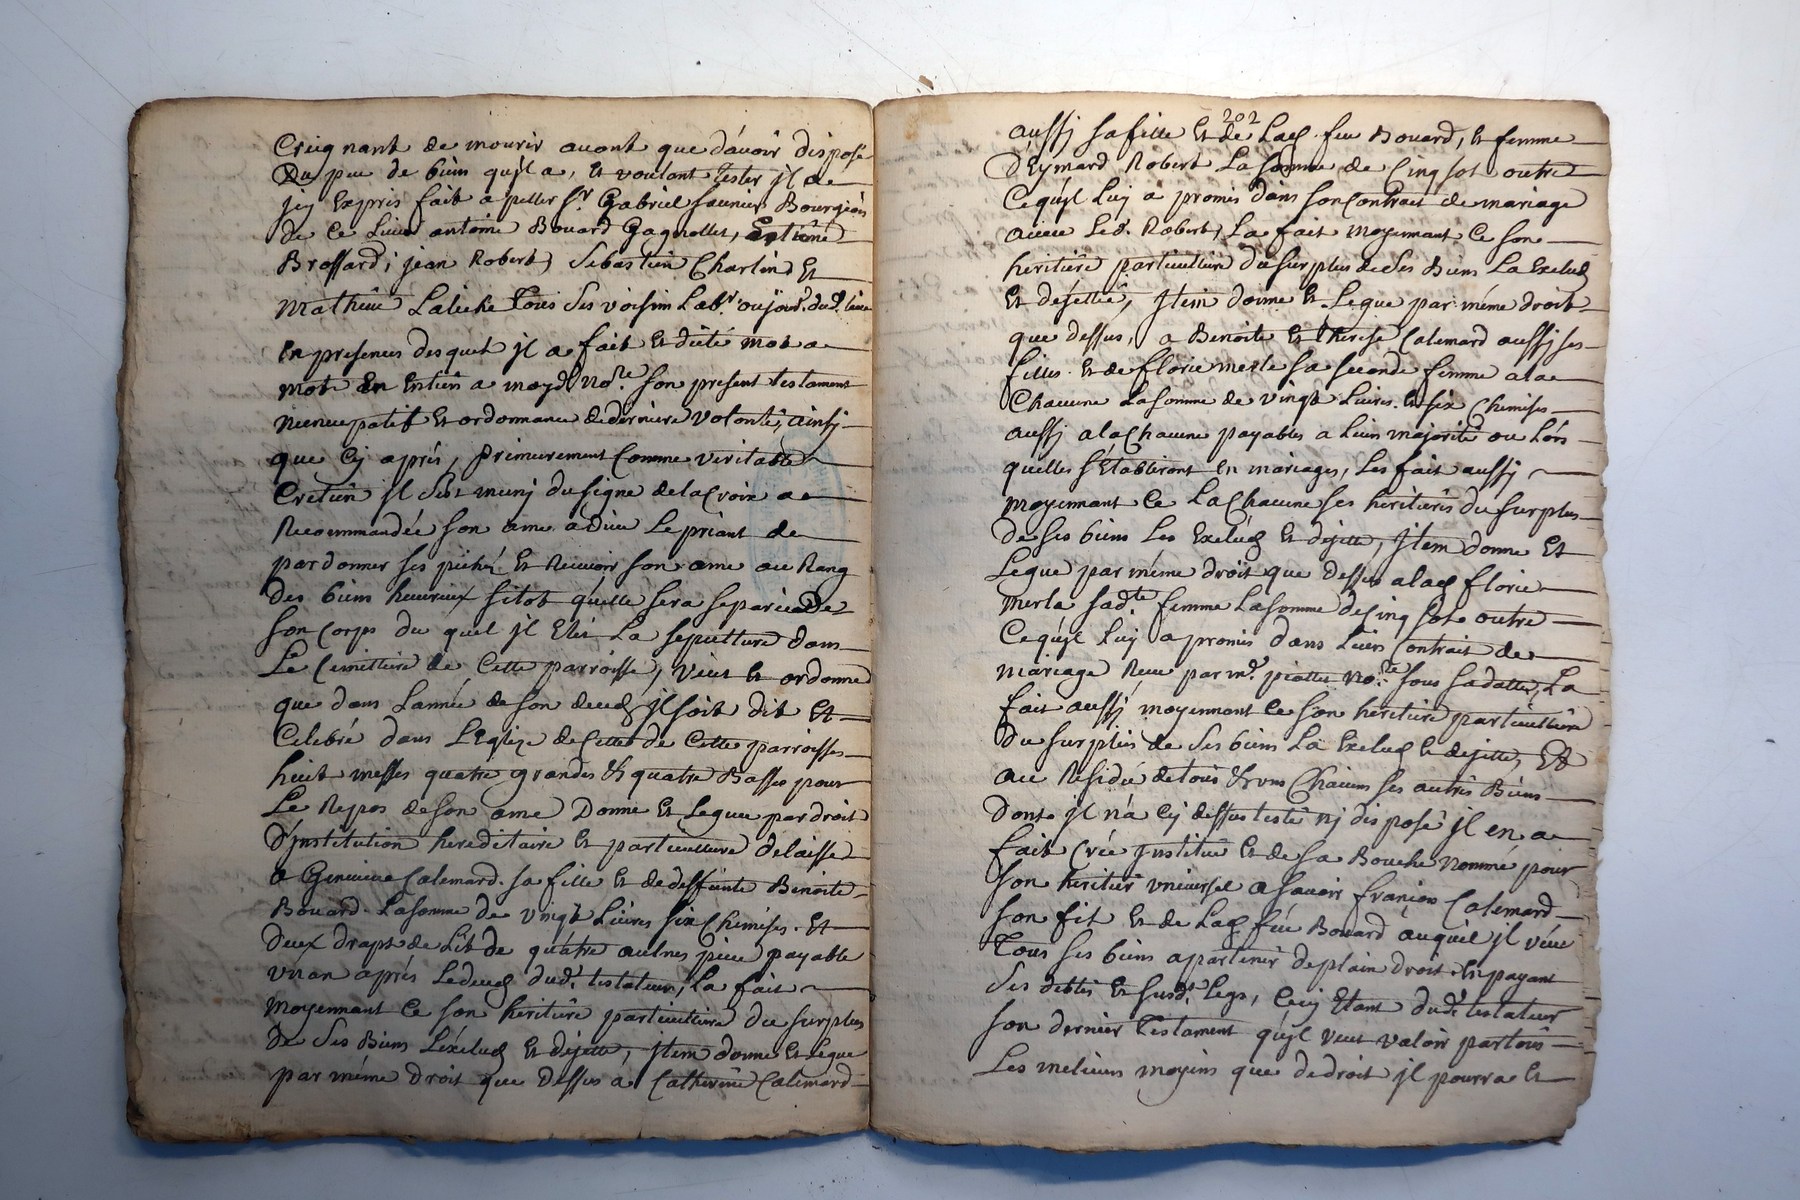 Creignant de mourir avant que d'avoir disposé
Du peu de bien qu'jl a, Et voulant Tester jl a
jcy Expris fait apeller Sr. Gabriel saunier Bourgeois
de Ce Lieu antoine Bouard Gagnollet, Estiene
Brossard, jean Robert, Sebastien Charlin Et
Mathieu Laliche Tous ses voisin Labr. dud. lieu
En presences desquels jl a fait Et dicté mot a
mot En Entier a moyd. Nore. Son present testament
nuncupatif Et ordonnance de derniere volonté, ainsj
que Cy aprés, primeirement Comme veritable
Cretien jl s'est munj du signe de la Croix a
Recommandée son ame a Dieu Le priant de
pardonner ses pichéz Et Recevoir son ame au Rang
des bien heureux sitot qu'elle sera separée de
son Corps du quel jl Elit La sepulture dans
Le Cemittiere de Cette parroisse, veut Et ordonne
que dans l'année de son deceds jl soit dit Et
Celebré dans L'Eglize de Cette de Cette parroisse
huit messes quatre grandes & quatre Basses pour
Le Repos de son ame Donne Et Legue par droit
D'jnstitution hereditaire Et particulliere delaisse
a Genevieve Calemard sa fille Et de deffunte Benoite
Bouard La somme de vingt Livres six Chemises Et
deux draps de Lit de quatre aulnes piece payable
un an aprés Le deceds dudt. testateur, La fait
moyennant Ce son heritiere particuliere du surplus
De ses Biens L'exclud Et dejette, jtem donne Et Legue
par méme droit que Dessus a Catherine Calemard
202
aussj sa fille Et de Lad. feu Bouard, Et femme
D'Eymard Robert La somme de Cinq sols outre
Ce qu'jl Luy a promis dans son Contrait de mariage
avec Led. Robert, La fait moyennant Ce son
heritiere particulliere du surplus de ses Biens La Exclud
Et dejettée, jtem donne Et Legue par méme droit
que dessus, a Benoite Et therese Calemard aussj ses
filles Et de florie merle sa seconde femme a la
Chacune La somme de vingt Livres Et six Chemises
aussj a la Chacune payables a Leur majorité ou Lors
quelles s'Etabliront En mariages, Les fait aussj
moyennant Ce La Chacune ses heritieres du surplus
De ses biens Les Exclud Et dejette, jtem donne Et
Legue par méme droit que dessus a lad. florie
merla sadte. femme La somme de Cinq sols outre
Ce qu'jl Luy a promis dans Leur Contrait de
mariage Receu par me. piotter Nore. sous sa datte, La
fait aussj moyennant Ce son heritiere particulliere
du surplus de ses biens La Exclud Et dejette, Et
au Residu de tous & uns Chacuns ses autres Biens
Dont jl n'a Cy dessus testé nj disposé jl en a
fait Crée jnstitué Et de sa Bouche Nommé pour
son heritier universel a savoir françois Calemard
son fils Et de Lad. feu Bouard auquel jl veut
Tous ses biens apartenir de plain droit En payant
ses debtes Et susdt. Legs, Cecy Etant dudt. testateur
son dernier Testament qu'jl veut valoir par tous
Les melieurs moyens que de droit jl pourra Et